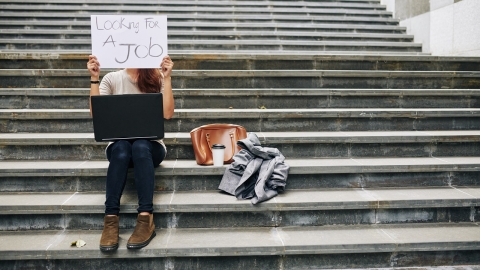 Looking For
A
Job